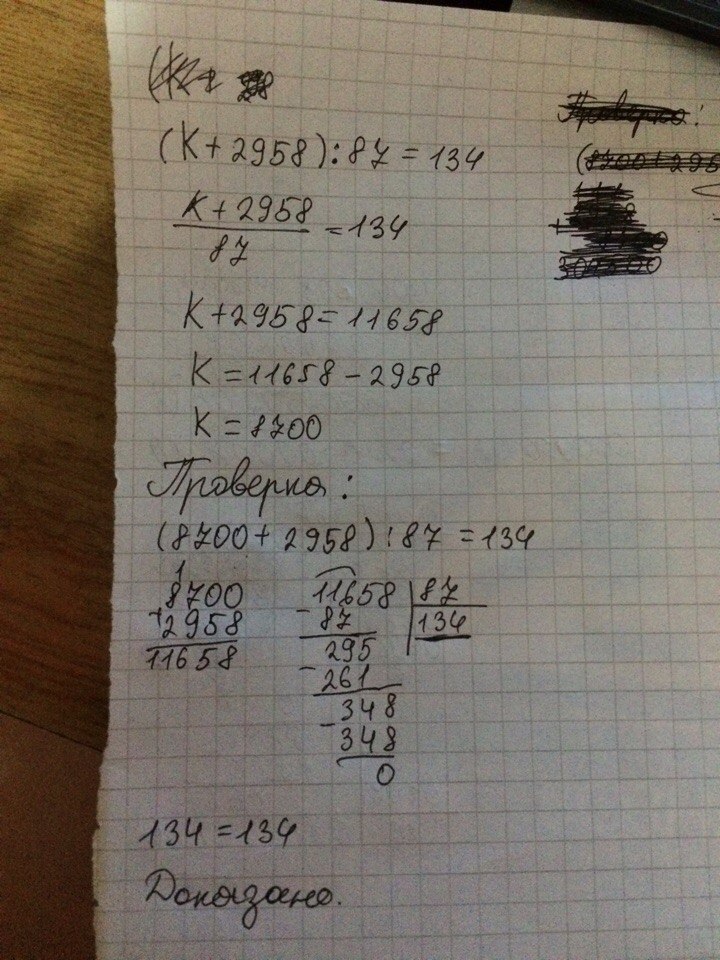 (K+2958):87=134
K+2958
87
=134
K+2958=11658
K=11658-2958
K=8700
Проверка:
(8700+2958):87=134
1
8700
+2958
11658
11658 87
-87 134
295
-261
348
-348
0
134=134
Доказано.